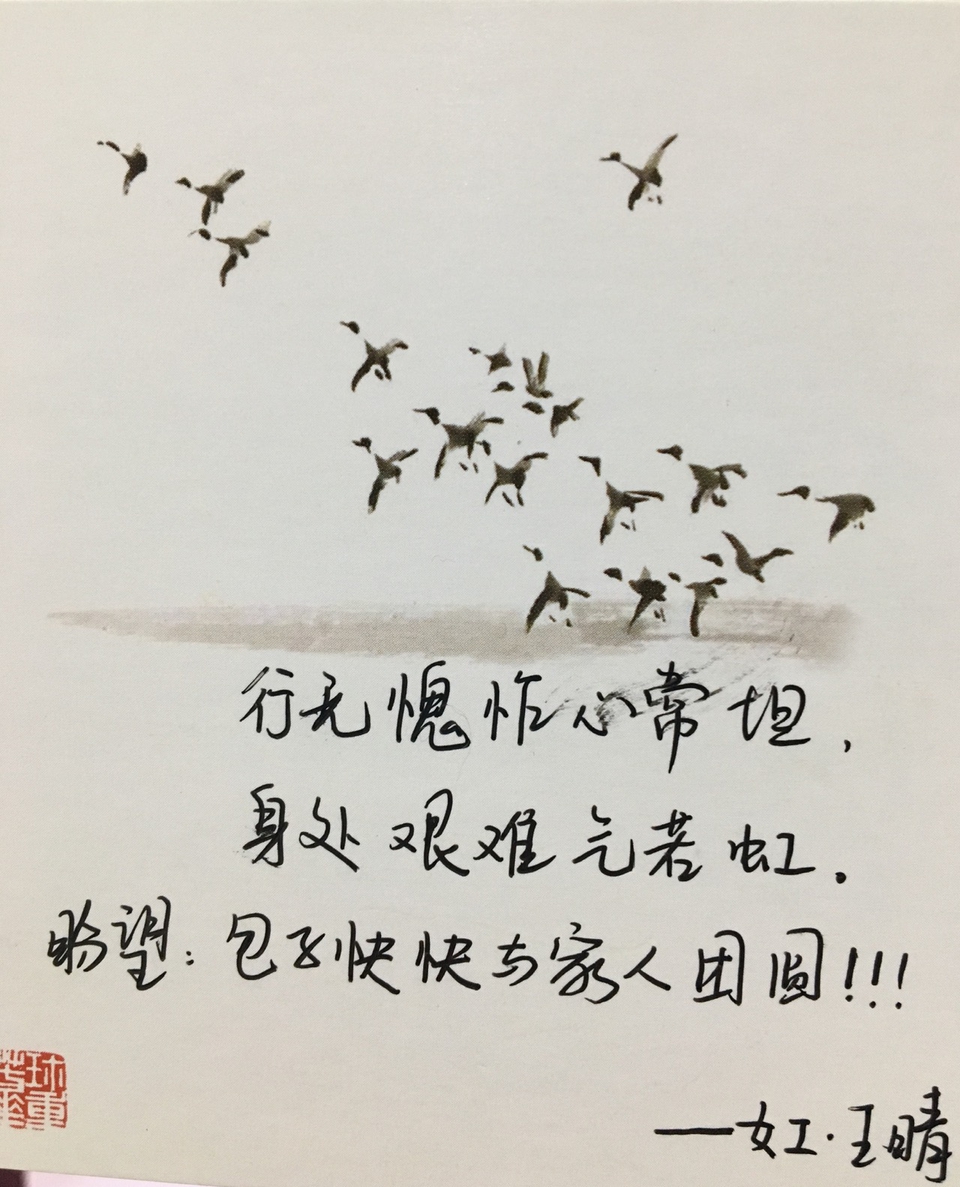 行无愧怍心常坦,
身处艰难气若虹.
盼望:包子快快与家人团圆!!!
——女工·王晴